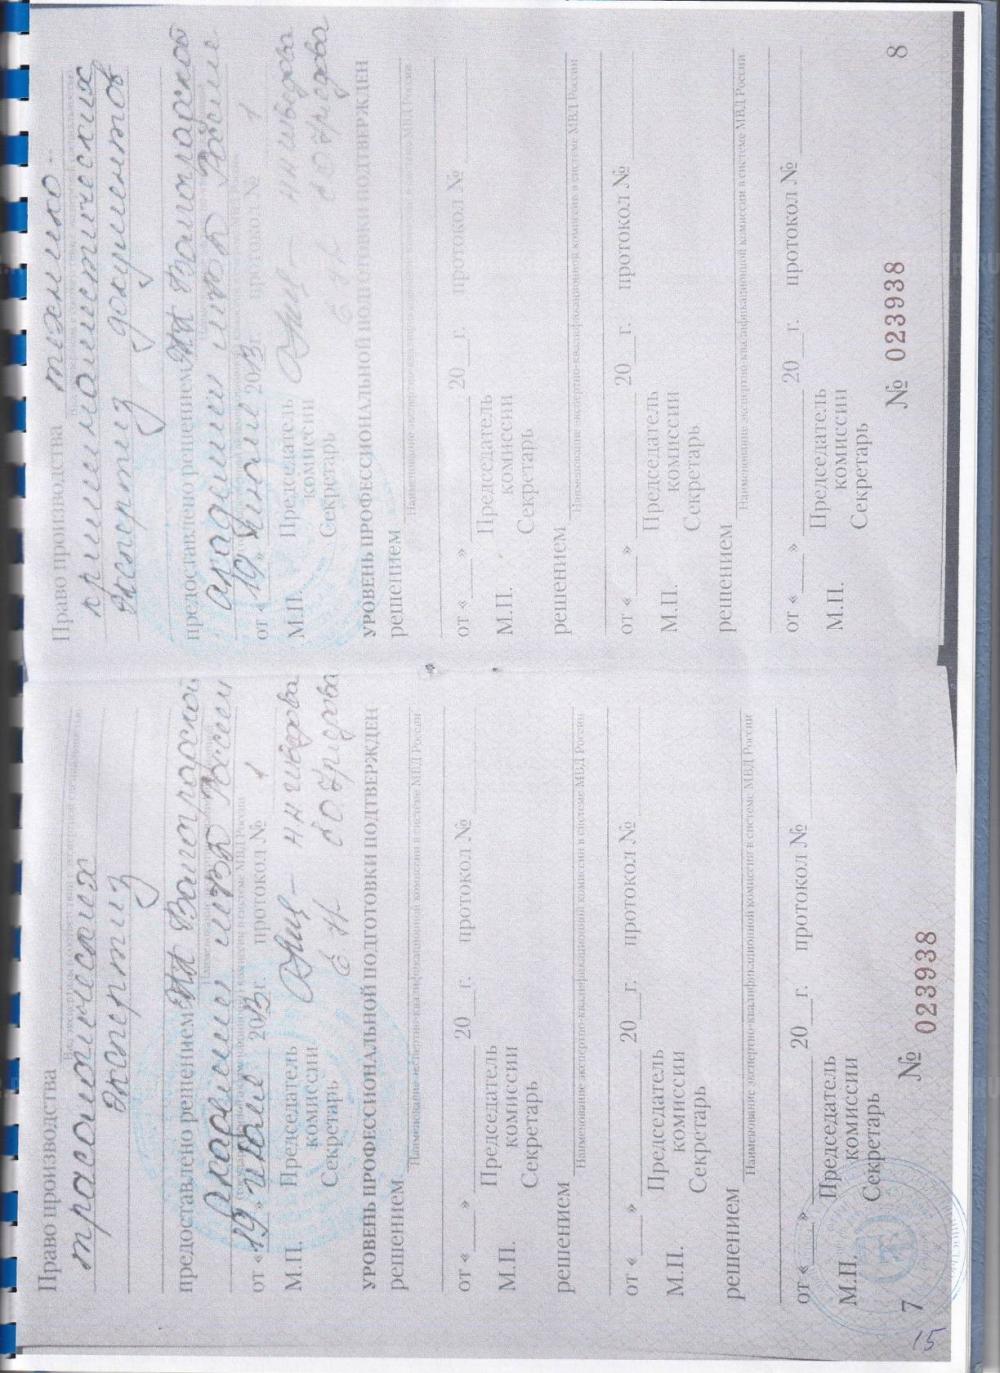 Право производства
трасологических
экспертиз
предоставлено решением ЭКК Волгоградской
академии МВД России
от «19» июля 2013 г. протокол № 1
М.П. Председатель комиссии Н.Н. Шведова
Секретарь
УРОВЕНЬ ПРОФЕССИОНАЛЬНОЙ ПОДГОТОВКИ ПОДТВЕРЖДЕН
решением
Наименование экспертно-квалификационной комиссии в системе МВД России
от «___» ________ 20__г. протокол № ______
М.П. Председатель
комиссии
Секретарь
решением
Наименование экспертно-квалификационной комиссии в системе МВД России
от «___» ________ 20__г. протокол № ______
М.П. Председатель
комиссии
Секретарь
решением
Наименование экспертно-квалификационной комиссии в системе МВД России
от «___» ________ 20__г. протокол № ______
М.П. Председатель
комиссии
Секретарь
7 № 023938
15
Право производства технико-
криминалистических
экспертиз документов
предоставлено решением ЭКК Волгоградской
академии МВД России
от «19» июля 2013 г. протокол № 1
М.П. Председатель комиссии Н.Н. Шведова
Секретарь
УРОВЕНЬ ПРОФЕССИОНАЛЬНОЙ ПОДГОТОВКИ ПОДТВЕРЖДЕН
решением
Наименование экспертно-квалификационной комиссии в системе МВД России
от «___» ________ 20__г. протокол № ______
М.П. Председатель
комиссии
Секретарь
решением
Наименование экспертно-квалификационной комиссии в системе МВД России
от «___» ________ 20__г. протокол № ______
М.П. Председатель
комиссии
Секретарь
решением
Наименование экспертно-квалификационной комиссии в системе МВД России
от «___» ________ 20__г. протокол № ______
М.П. Председатель
комиссии
Секретарь
№ 023938 8